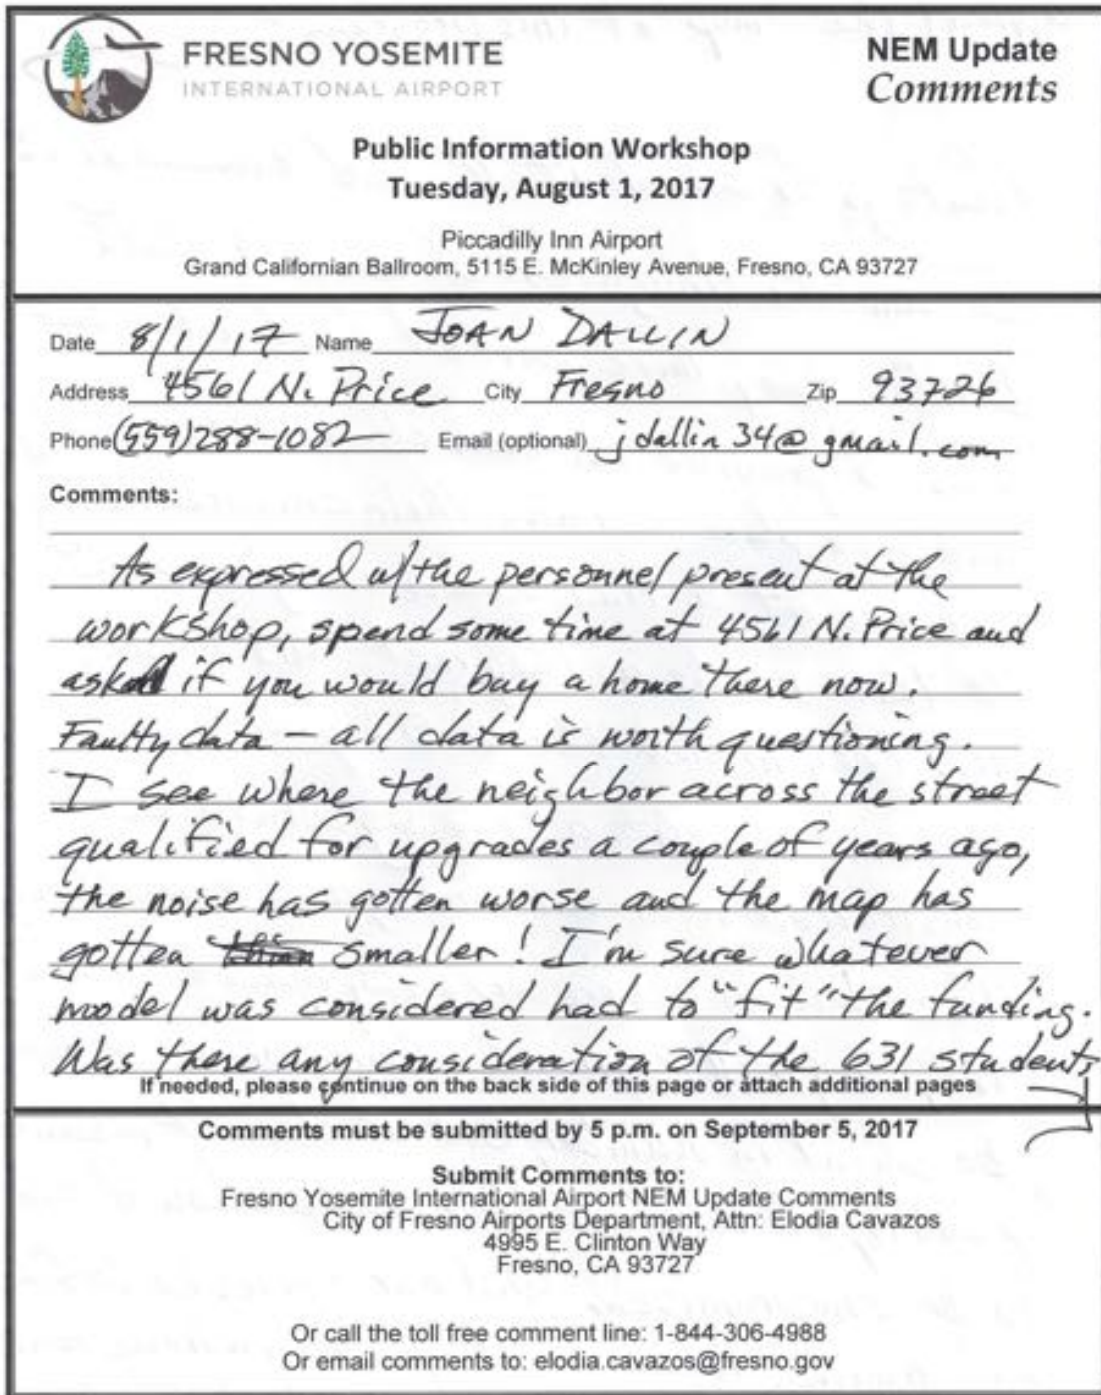 FRESNO YOSEMITE
INTERNATIONAL AIRPORT
NEM Update
Comments
Public Information Workshop
Tuesday, August 1, 2017
Piccadilly Inn Airport
Grand Californian Ballroom, 5115 E. McKinley Avenue, Fresno, CA 93727
Date 8/1/17 Name JOAN DALLIN
Address 4561 N. Price City Fresno Zip 93726
Phone (559)288-1082 Email (optional) jdallin34@gmail.com
Comments:
As expressed w/the personnel present at the
workshop, spend some time at 4561 N. Price and
ask if you would buy a home there now.
Faulty data - all data is worth questioning.
I see where the neighbor across the street
qualified for upgrades a couple of years ago,
the noise has gotten worse and the map has
gotten smaller! I'm sure whatever
model was considered had to "fit" the funding.
Was there any consideration of the 631 students
If needed, please continue on the back side of this page or attach additional pages
Comments must be submitted by 5 p.m. on September 5, 2017
Submit Comments to:
Fresno Yosemite International Airport NEM Update Comments
City of Fresno Airports Department, Attn: Elodia Cavazos
4995 E. Clinton Way
Fresno, CA 93727
Or call the toll free comment line: 1-844-306-4988
Or email comments to: elodia.cavazos@fresno.gov